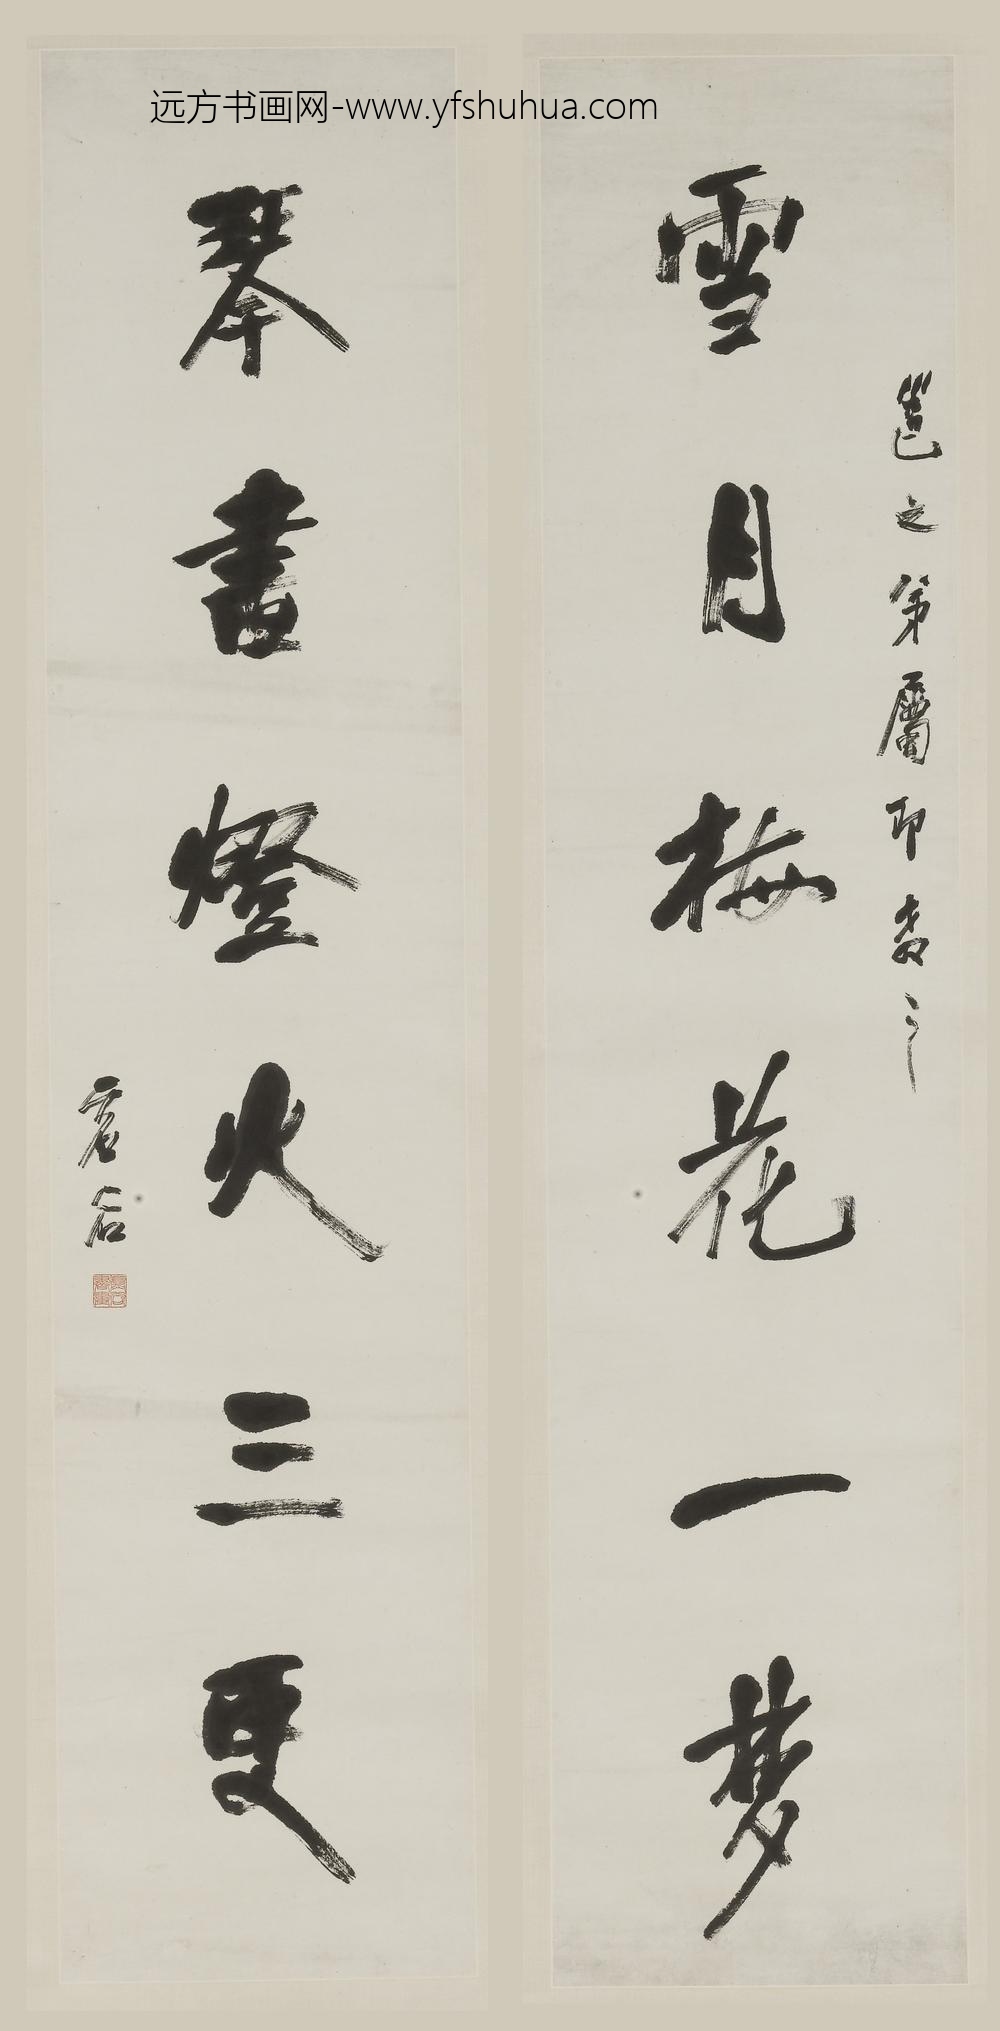 远方书画网-www.yfshuhua.com
雪月梅花一梦
琴書燈火三更
之弟屬即教之
虚谷